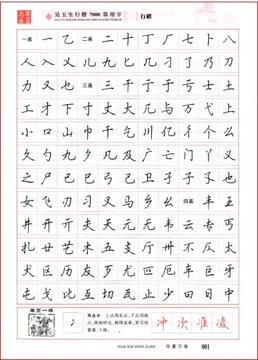 吴玉生行楷 7000 常用字 行楷
一画 一 乙 二画 二 十 丁 厂 七 卜 八
人 入 乂 儿 九 匕 几 刁 了 乃 刀
力 又 也 三画 三 干 于 亏 士 土
工 才 下 寸 丈 大 兀 与 万 弋 上
小 口 山 巾 千 乞 川 亿 个 么
久 勺 丸 夕 凡 及 广 亡 门 丫 义
之 尸 已 巳 弓 己 卫 子 孑 孓 也
女 飞 刃 习 叉 马 乡 幺 四画 丰 王
井 开 亓 夫 天 元 无 韦 云 专 丐
扎 廿 艺 木 五 支 厅 卅 不 仄 太
犬 区 历 友 歹 尤 匹 厄 车 巨 牙
屯 戈 比 互 切 瓦 止 少 曰 日 中
每页一练
冫 两点水
冲 次 准 凌
HUA XIA WAN JUAN 华夏万卷 001